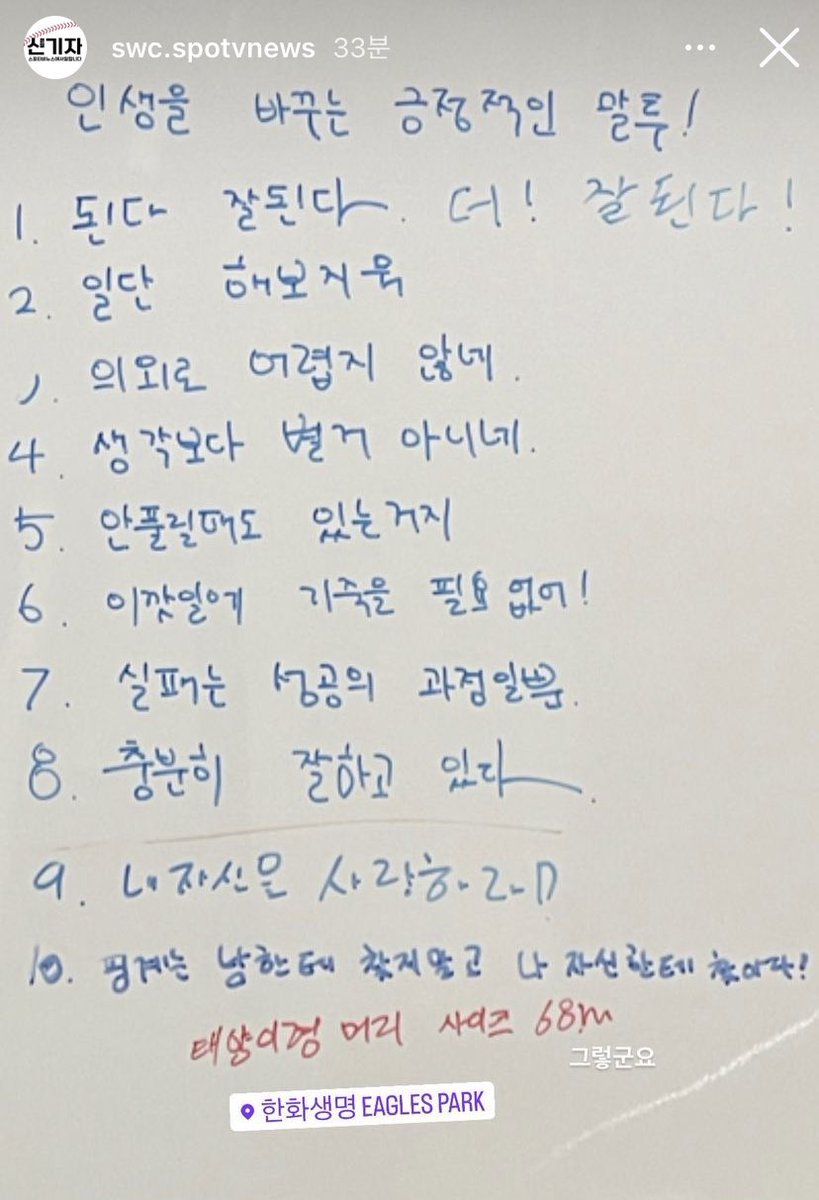 신기자
swc.spotvnews 33분
인생을 바꾸는 긍정적인 말투!
1. 된다 잘된다. 더! 잘된다!
2. 일단 해보지뭐
3. 의외로 어렵지 않네.
4. 생각보다 별거 아니네.
5. 안풀릴때도 있는거지
6. 이깟일에 기죽을 필요없어!
7. 실패는 성공의 과정일뿐.
8. 충분히 잘하고 있다.
9. 내자신을 사랑하라
10. 핑계는 남한테 찾지말고 나 자신한테 찾아라!
태양이형 머리 사이즈 68m
그렇군요
한화생명 EAGLES PARK